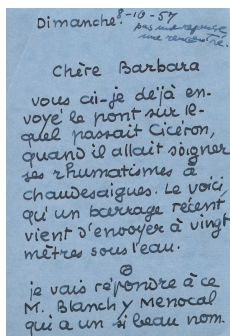 Dimanche. 8-10-57
pas une reponse,
une rencontre.
Chère Barbara
vous ai-je déjà en-
voyé le pont sur le-
quel passait Cicéron,
quand il allait soigner
ses rhumatismes à
chaudesaigues. Le voici,
qu'un barrage récent
vient d'envoyer à vingt
mètres sous l'eau.
je vais répondre à ce
M. Blanch y Menocal
qui a un si beau nom.